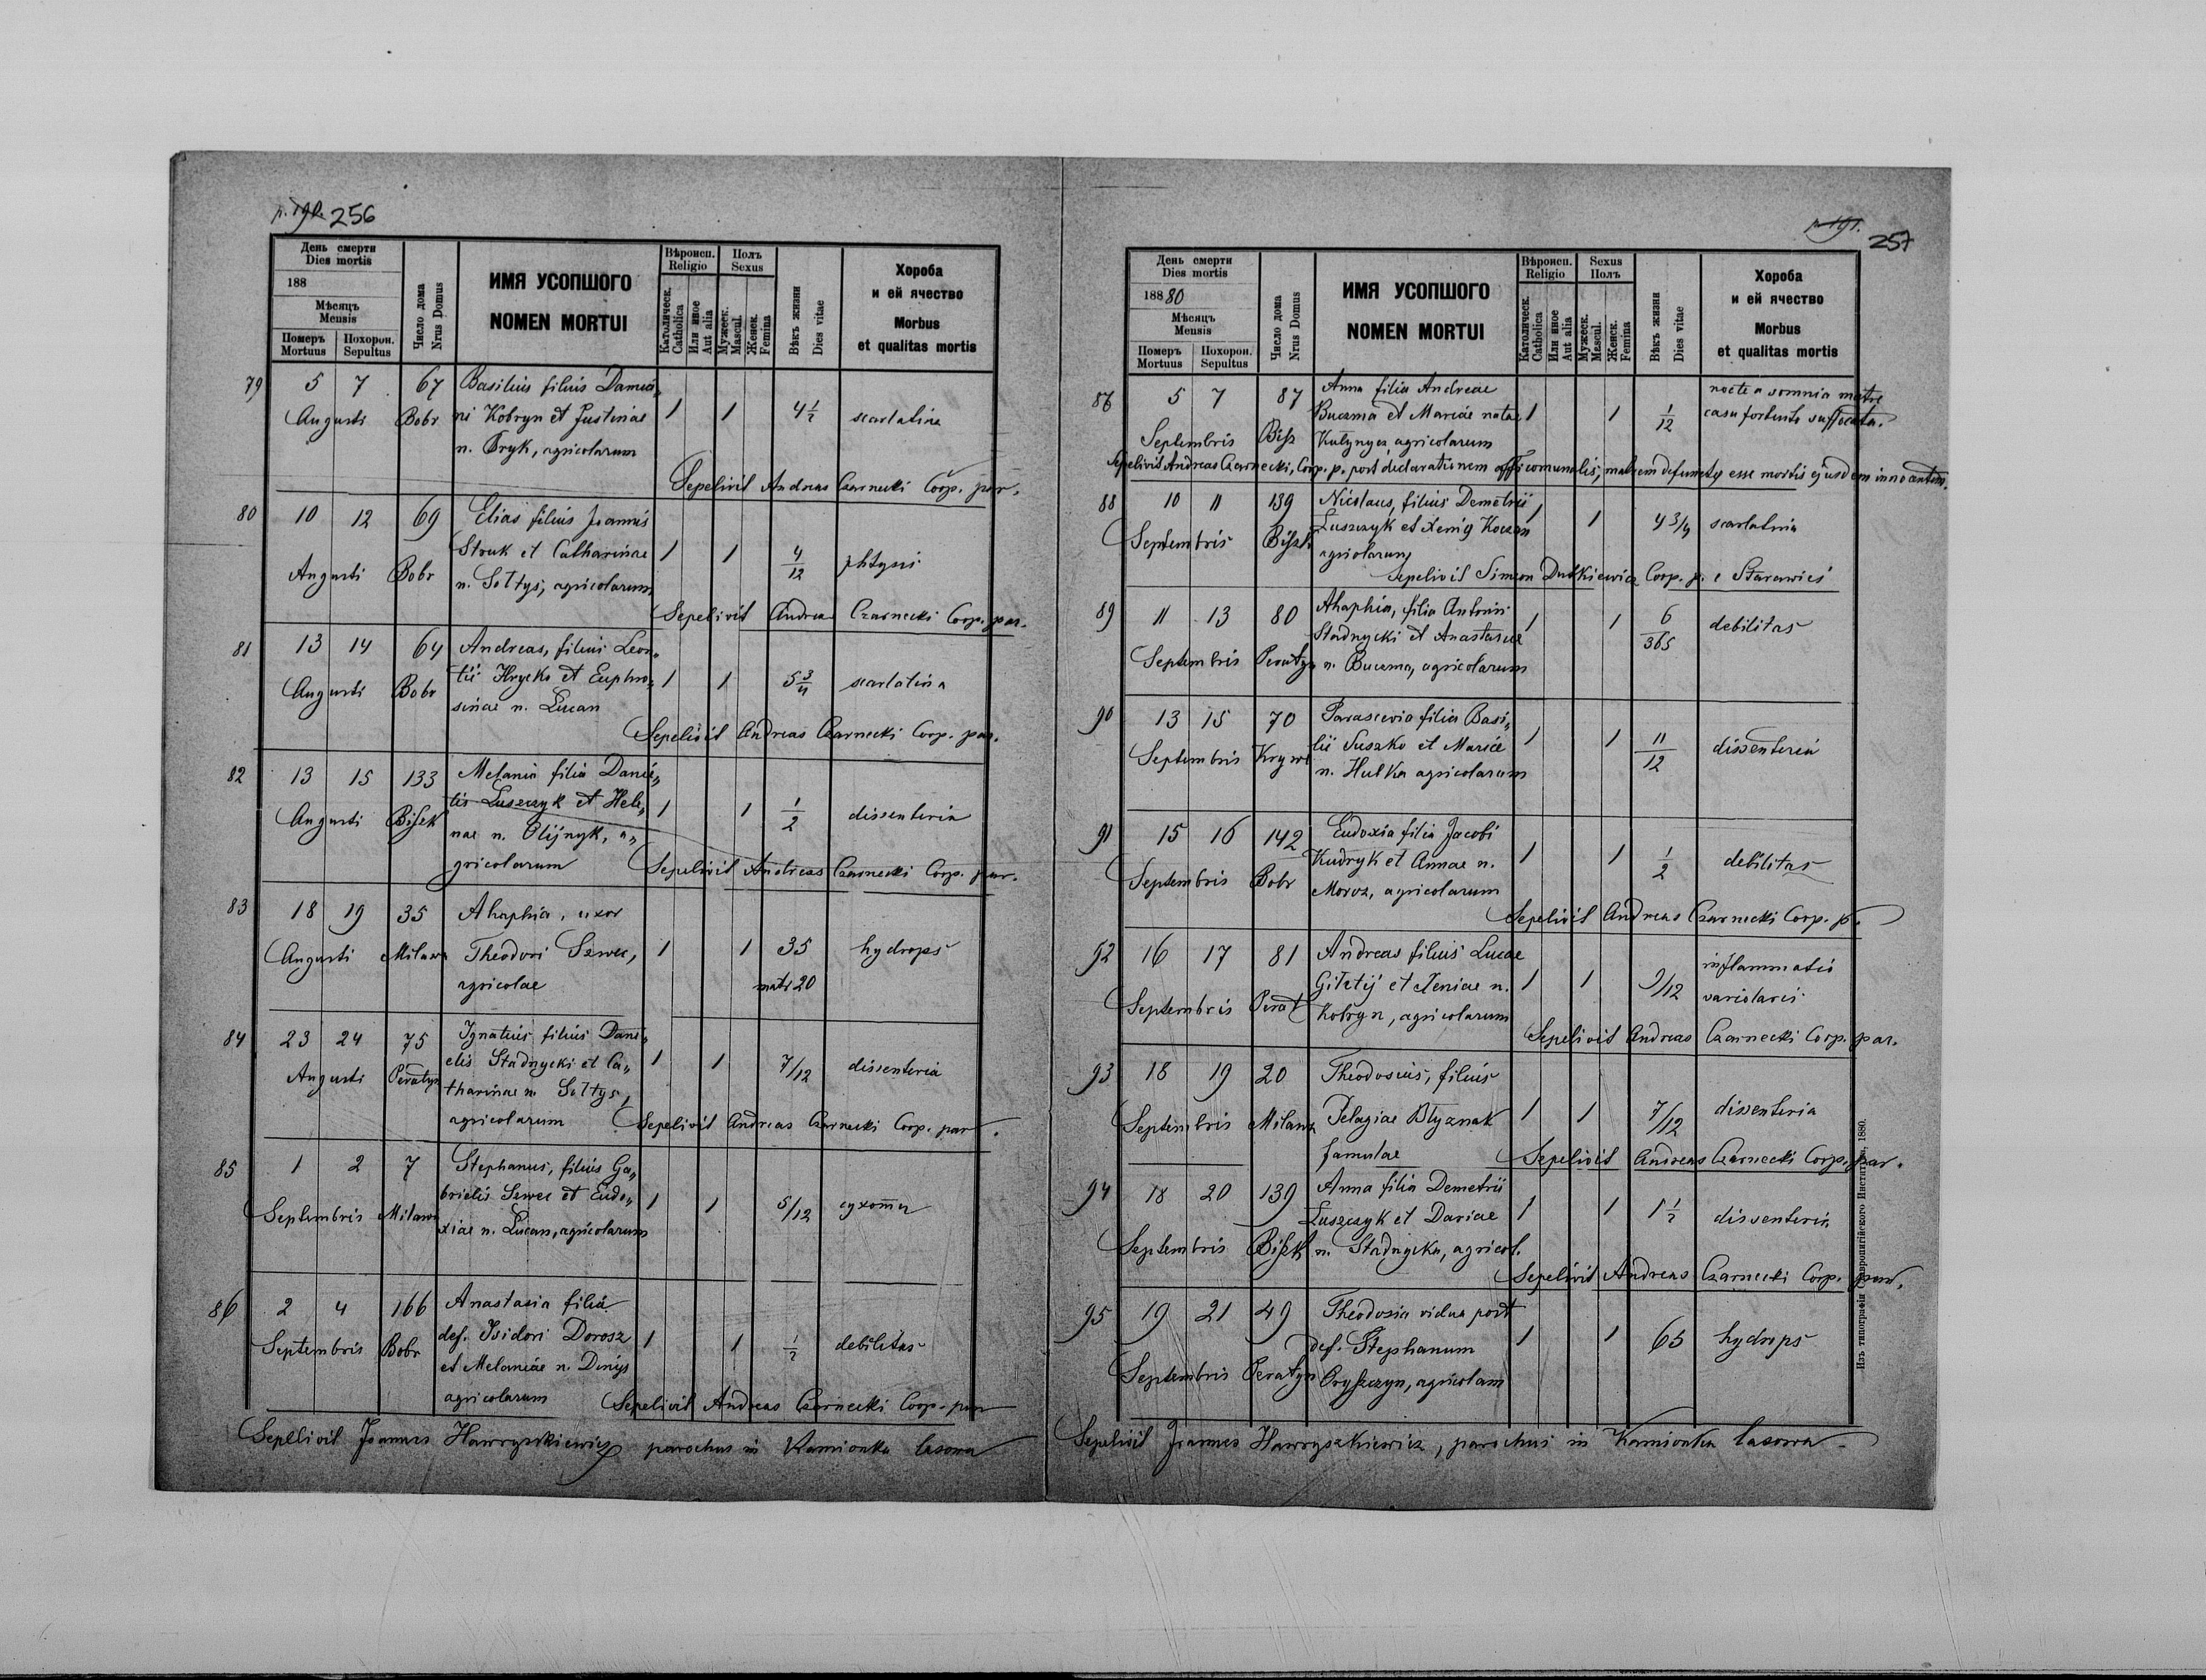 256
День смерти
Dies mortis
188
Мѣсяць
Mensis
Померъ
Mortuus
Похорон.
Sepultus
Число дома
Nrus Domus
ИМЯ УСОПШОГО
NOMEN MORTUI
Вѣроисп.
Religio
Католическ.
Catholica
Или иное
Aut alia
Полъ
Sexus
Мужеск.
Mascul.
Женск.
Femina
Вѣкъ жизни
Dies vitae
Хороба
и ей ячество
Morbus
et qualitas mortis
79 5 7 67 Basilius filius Damia„
Augusti Bobr ni Kobryn et Justinae 1 1 4 1/2 scarlatina
n. Bryk, agricolarum
Sepelivit Andreas Czarnecki Coop. par.
80 10 12 69 Elias filius Joannis
Augusti Bobr Struk et Catharinae 1 1 4/12 phtysis
n. Sołtys, agricolarum
Sepelivit Andreas Czarnecki Coop. par.
81 13 14 64 Andreas, filius Leon„
Augusti Bobr tii Hrycko et Euphro„ 1 1 5 3/4 scarlatina
sinae n. Lucan
Sepelivit Andreas Czarnecki Coop. par.
82 13 15 133 Melania filia Danie„
Augusti Bisek lis Łuszczyk et Hele„ 1 1 1/2 dissenteria
nae n. Olijnyk, a„
gricolarum Sepelivit Andreas Czarnecki Coop. par.
83 18 19 35 Ahaphia, uxor
Augusti Milawa Theodori Szwec, 1 1 35 hydrops
agricolae matr 20
84 23 24 75 Ignatius filius Dani„
Augusti Peratyn elis Stadnycki et Ca„ 1 1 7/12 dissenteria
tharinae n. Sołtys,
agricolarum Sepelivit Andreas Czarnecki Coop. par.
85 1 2 7 Stephanus, filius Ga„
Septembris Milawa brielis Szwec et Eudo„ 1 1 5/12 сухоты
xiae n. Lucan, agricolarum
86 2 4 166 Anastasia filia
Septembris Bobr def. Isidori Dorosz 1 1 1/2 debilitas
et Melaniae n. Denys
agricolarum Sepelivit Andreas Czarnecki Coop. par
Sepelivit Joannes Hawryszkiewicz parochus in Kamionka lasowa
257
День смерти
Dies mortis
18880
Мѣсяць
Mensis
Померъ
Mortuus
Похорон.
Sepultus
Число дома
Nrus Domus
ИМЯ УСОПШОГО
NOMEN MORTUI
Вѣроисп.
Religio
Католическ.
Catholica
Или иное
Aut alia
Sexus
Полъ
Мужеск.
Mascul.
Женск.
Femina
Вѣкъ жизни
Dies vitae
Хороба
и ей ячество
Morbus
et qualitas mortis
5 7 87 Anna filia Andreae nocte a somnia matre
Buczma et Mariae natae 1 1 1/12 casu fortuito suffocata.
Septembris Bisz agricolarum
Sepelivit Andreas Czarnecki, Coop. p. post declarationem off comunalis, matrem defunctae esse mortis ejusdem innocentem.
88 10 11 139 Nicolaus, filius Demetrii
Septembris Łuszczyk et Xeniae 1 1 4 3/4 scarlatina
agricolarum
Sepelivit Simeon Dutkiewicz Coop. p. e
89 11 13 80 Ahaphia, filia Antonii
Stadnycki et Anastasiae 1 1 6/365 debilitas
Septembris Peratyn n. Buczma, agricolarum
90 13 15 70 Parascevia filia Basi„
Septembris lii Suszko et Mariae 1 1 11/12 dissenteria
n. Hulka agricolarum
91 15 16 142 Eudoxia filia Jacobi
Septembris Bobr Kudryk et Annae n. 1 1 1/2 debilitas
Moroz, agricolarum
Sepelivit Andreas Czarnecki Coop. p.
92 16 17 81 Andreas filius Lucae inflammatio
et Xeniae n. 1 1 9/12 variolaris
Septembris Perat Kobryn, agricolarum
Sepelivit Andreas Czarnecki Coop. par.
93 18 19 20 Theodosius, filius
Septembris Milawa Pelagiae Błyznak 1 1 7/12 dissenteria
famulae Sepelivit Andreas Czarnecki Coop. par.
94 18 20 139 Anna filia Demetrii
Łuszczyk et Dariae 1 1 1 1/2 dissenteria
Septembris Bisek n. Stadnycka, agricol.
Sepelivit Andreas Czarnecki Coop. par.
95 19 21 49 Theodosia vidua post
def. Stephanum 1 1 65 hydrops
Septembris Peratyn Oryszczyn, agricolam
Sepelivit Joannes Hawryszkiewicz, parochus in Kamionka lasowa
Изъ типографіи Ставропигійского Института. 1880.